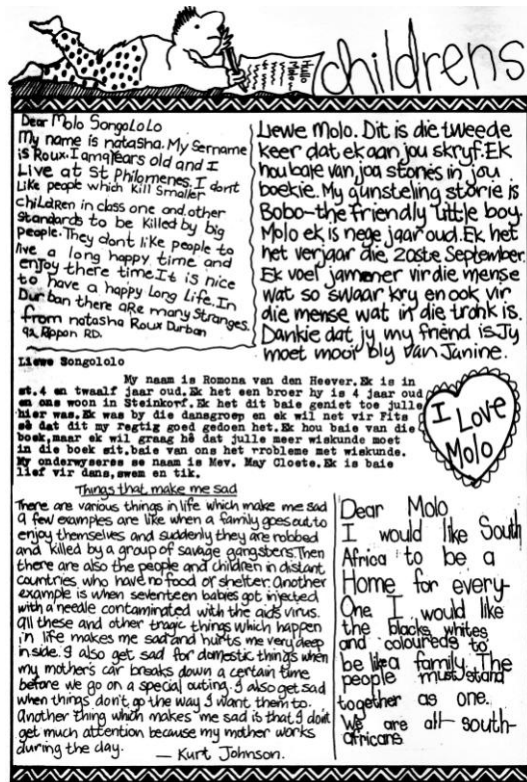 Hullo
Molo
childrens
Dear Molo SongoLoLo
My name is natasha. My Sername
is Roux. I am 9 years old and I
Live at St Philomenes. I dont
Like people which kill Smaller
children in class one and other
Standards to be killed by big
people. They dont like people to
live a long happy time and
enjoy there time. It is nice
to have a happy Long Life. In
Durban there aRe many Stranges.
from natasha Roux Durban
92 Rippon RD.
Liewe Molo. Dit is die tweede
keer dat ek aan jou skryf. Ek
hou baie van joa stories in jou
boekie. My gunsteling storie is
Bobo-the friendly little boy.
Molo ek is nege jaar oud. Ek het
het verjaar die 20ste September.
Ek voel jammer vir die mense
wat so swaar kry en ook vir
die mense wat in die tronk is.
Dankie dat jy my friend is. Jy
moet mooi bly Van Janine.
Liewe Songololo
My naam is Romona van den Heever. Ek is in
st.4 en twaalf jaar oud. Ek het een broer hy is 4 jaar oud
en ons woon in Steinkopf. Ek het dit baie geniet toe julle
hier was. Ek was by die dansgroep en ek wil net vir Fits
sê dat dit my regtig goed gedoen het. Ek hou baie van die
boek, maar ek wil graag hê dat julle meer wiskunde moet
in die boek sit, baie van ons het probleme met wiskunde.
My onderwyseres se naam is Mev. May Cloete. Ek is baie
lief vir dans, swem en tik.
I Love
Molo
Things that make me sad
There are various things in life which make me sad
a few examples are like when a family goes out to
enjoy themselves and suddenly they are robbed
and killed by a group of savage gangsters. Then
there are also the people and children in distant
countries who have no food or shelter. another
example is when seventeen babies got injected
with a needle contaminated with the aids virus.
all these and other tragic things which happen
in life makes me sad and hurts me very deep
inside. I also get sad for domestic things when
my mother's car breaks down a certain time
before we go on a special outing. I also get sad
when things don't go the way I want them to.
another thing which makes me sad is that I don't
get much attention because my mother works
during the day. — Kurt Johnson.
Dear Molo
I would like South
Africa to be a
Home for every-
One I would like
the blacks whites
and coloureds to
be like a family. The
people must stand
together as one.
We are all south-
africans